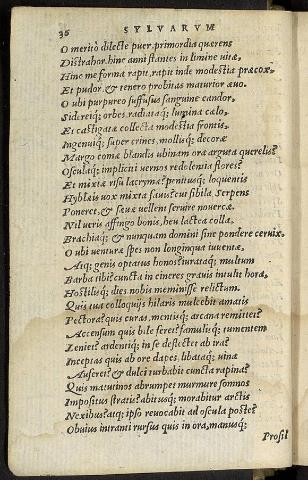 36 SYLVARVM
O meritò dilecte puer. primordia querens
Distrahor. hinc anni stantes in limine uitæ,
Hinc me forma rapit, rapit inde modestia præcox.
Et pudor, & tenero probitas maturior æuo.
O ubi purpureo suffusus sanguine candor,
Sidereiq; orbes, radiataq; lumina cælo,
Et castigata collecta modestia frontis,
Ingenuiq; super crines, mollisq; decoræ
Margo comæ blandis ubinam ora arguta querelis?
Osculaq; impliciti vernos redolentia flores?
Et mixtæ risu lacrymæ? penitusq; loquentis
Hyblæis uox mixta fauis? cui sibila Serpens
Poneret, & sæuæ uellent seruire nouercæ.
Nil ueris affingo bonis, heu lactea colla,
Brachiaq; & nunquam domini sine pondere ceruix.
O ubi venturæ spes non longinqua iuuentæ,
Atq; genis optatus honos? iurataq; multum
Barba tibi? cuncta in cineres grauis intulit hora,
Hostilisq; dies. nobis meminisse relictum.
Quis tua colloquijs hilaris mulcebit amatis
Pectora? quis curas, mentisq; arcana remittet?
Accensum quis bile feret? famulisq; tumentem
Leniet? ardentiq; in se deflectet ab ira?
Inceptas quis ab ore dapes, libataq; uina
Auferet? & dulci turbabit cuncta rapina?
Quis matutinos abrumpet murmure somnos
Impositus stratis? abitusq; morabitur arctis
Nexibus? atq; ipso reuocabit ad oscula poste?
Obuius intranti rursus quis in ora, manusq;
Prosil